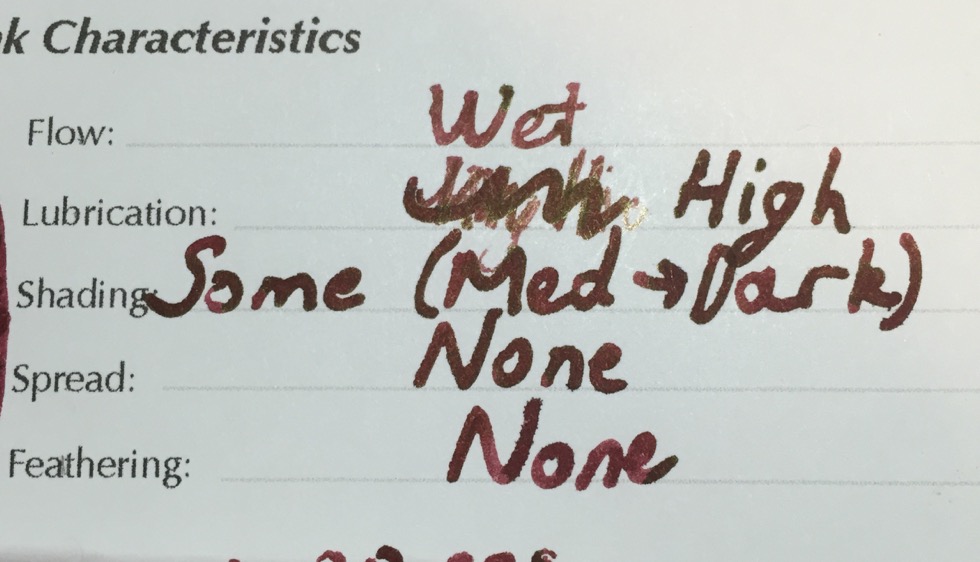 k Characteristics
Flow: Wet
Lubrication: High
Shading: Some (Med → Dark)
Spread: None
Feathering: None